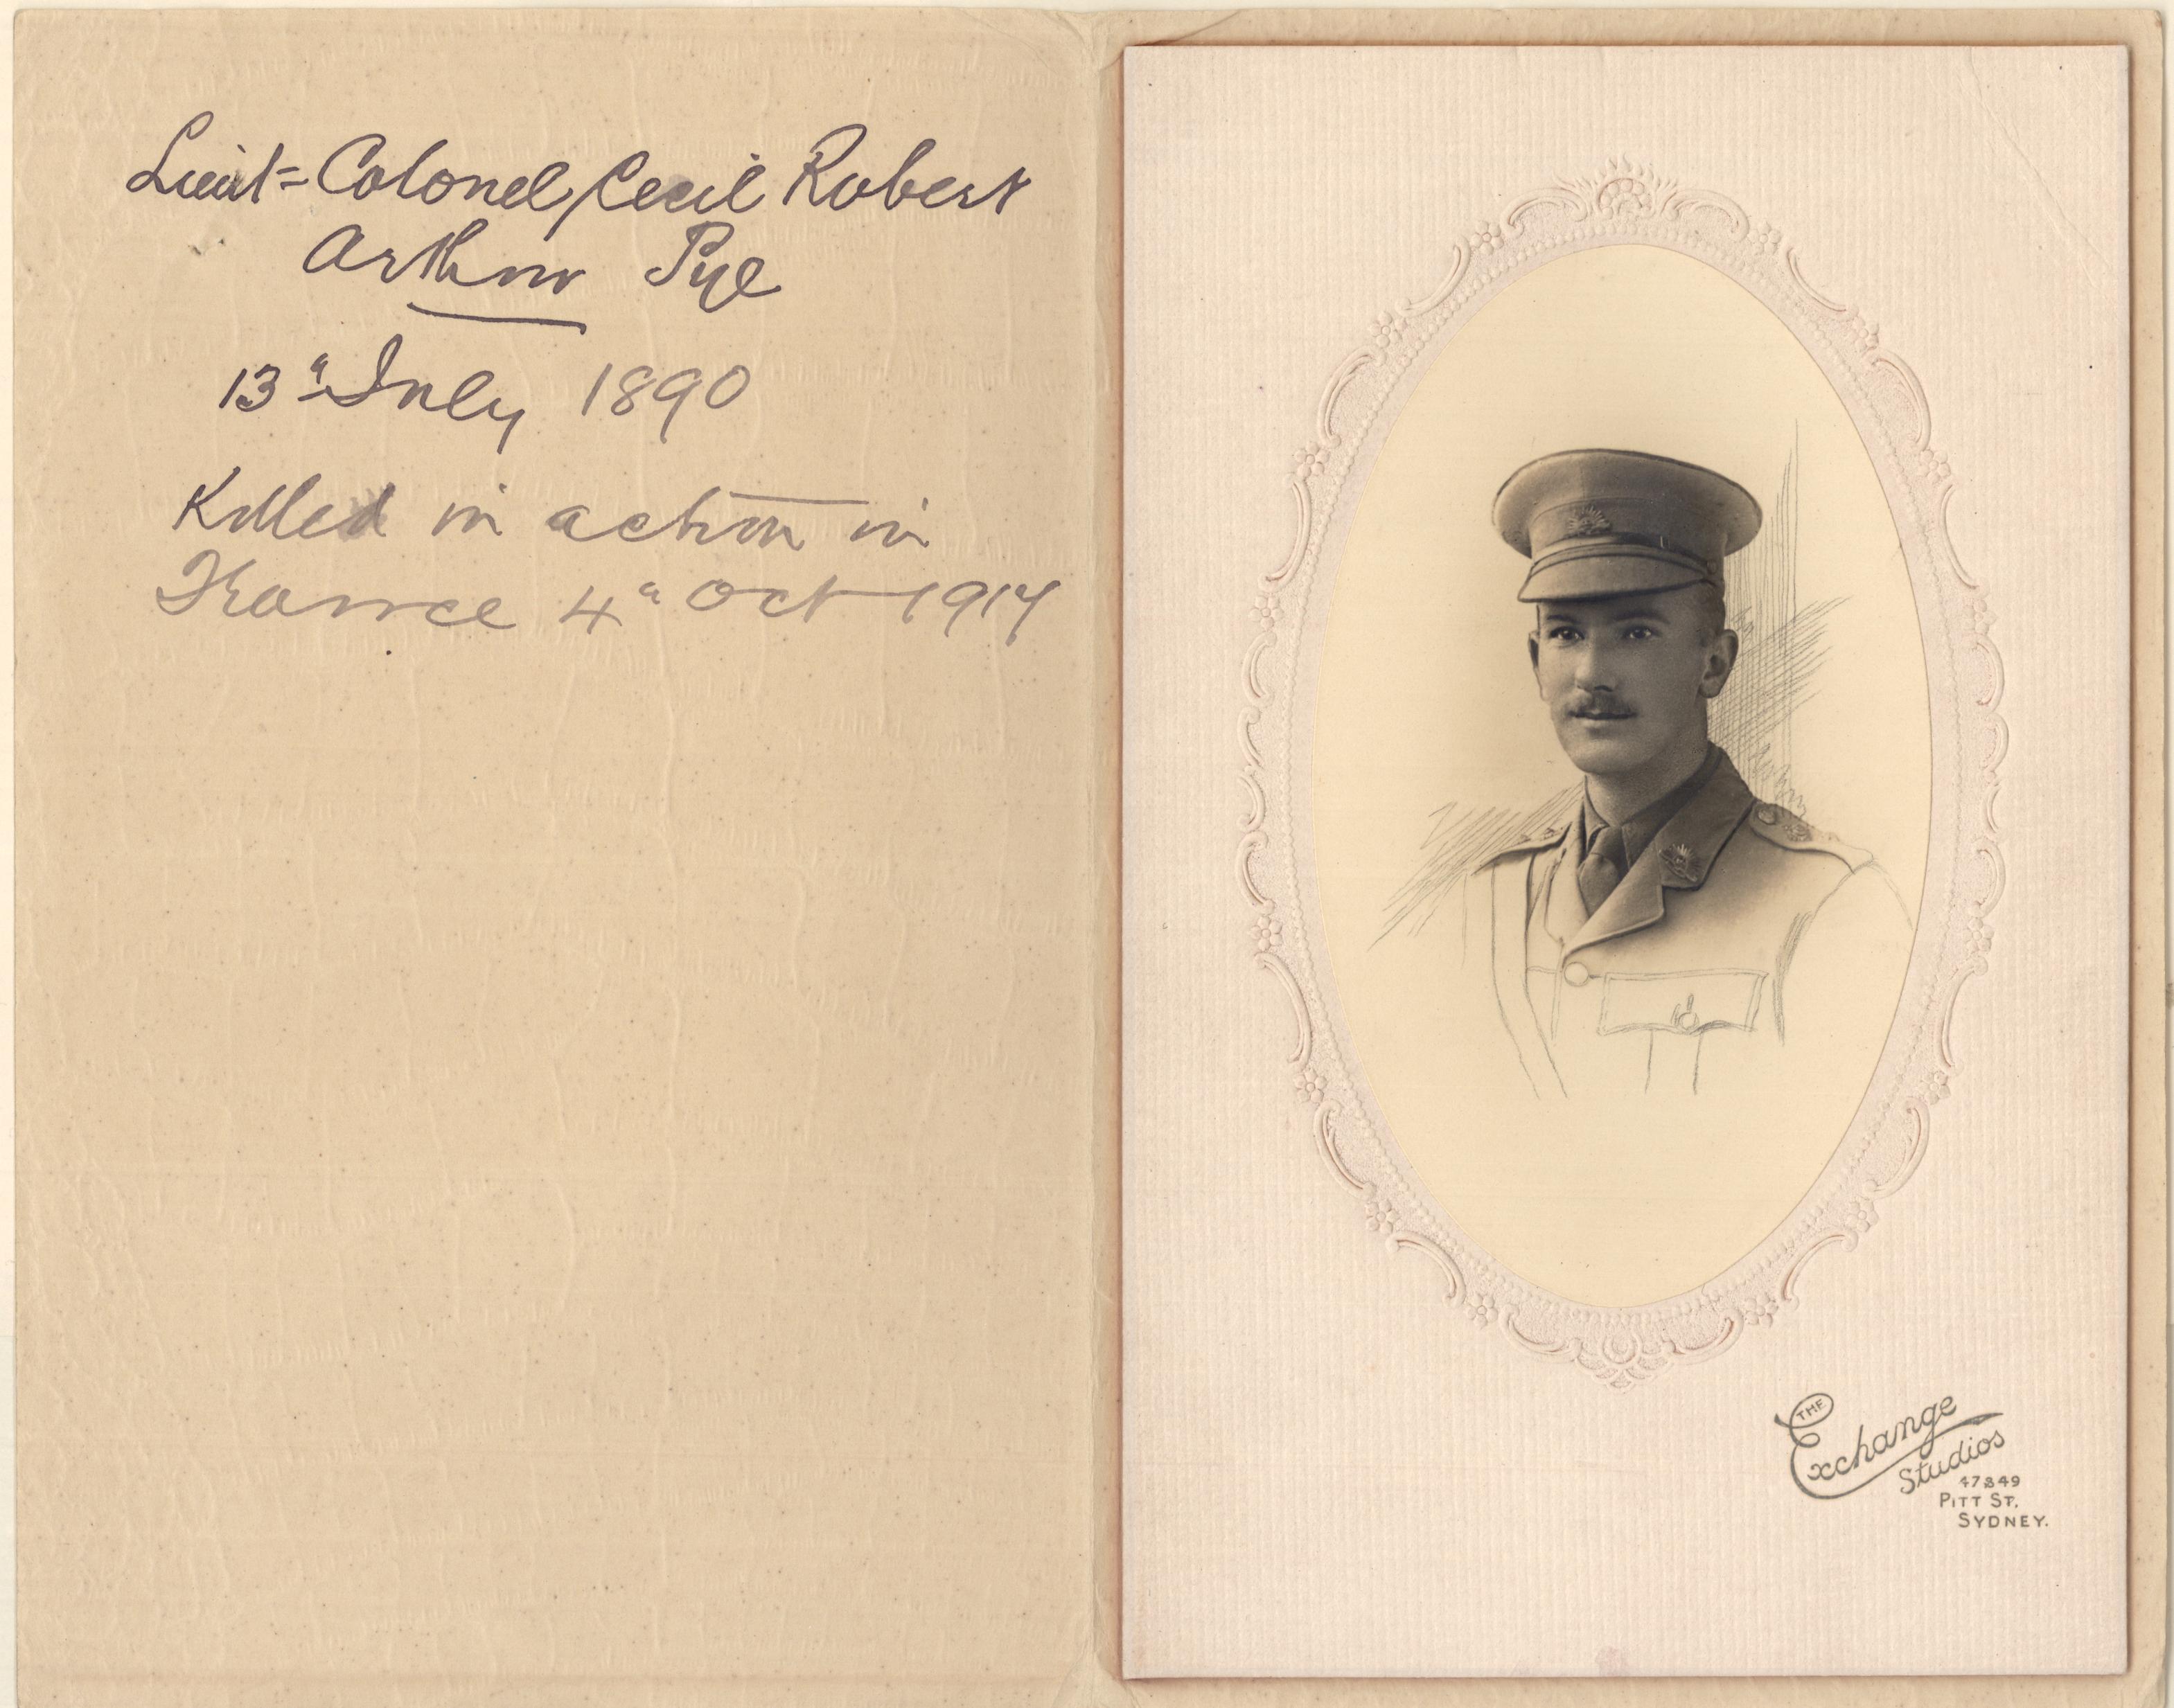 Lieut=Colonel Cecil Robert
Arthur Pye
13" July 1890
Killed in action in
France 4" Oct 1917
THE
Exchange
Studios
47 & 49
PITT ST.
SYDNEY.